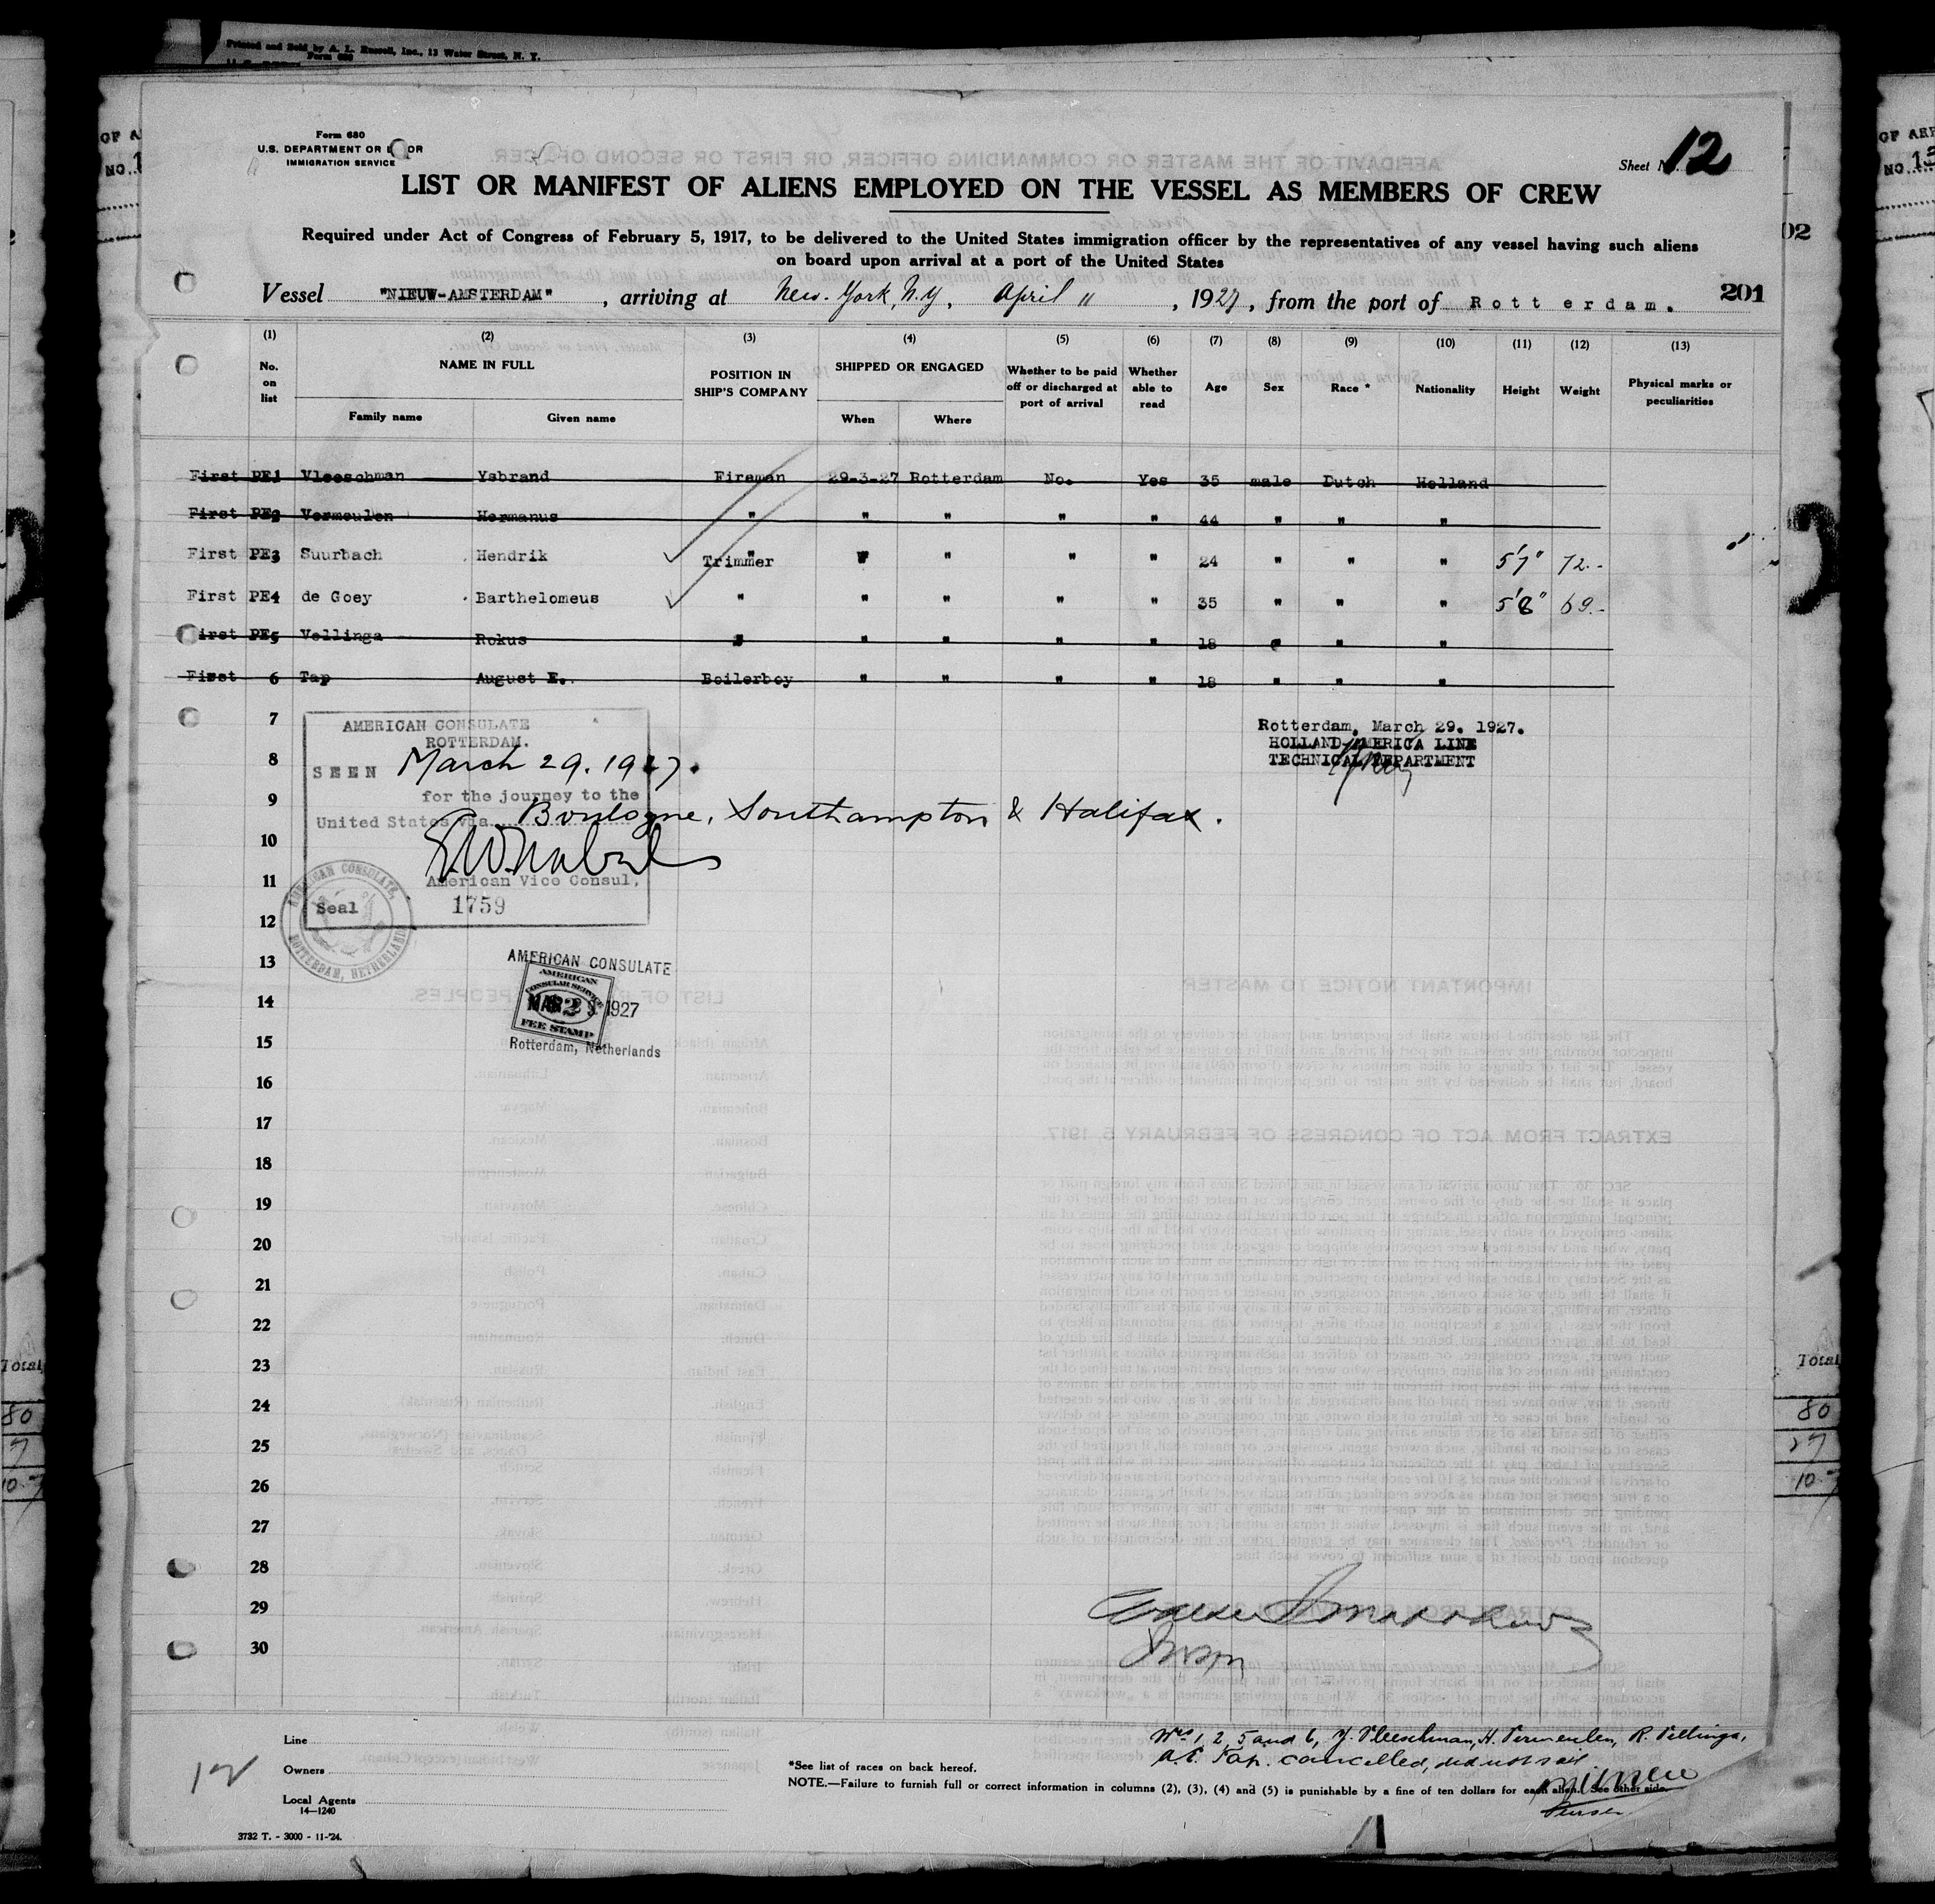 Printed and Sold by A. L. Russell, Inc., 13 Water Street, N. Y.
Form 680
Form 680
U.S. DEPARTMENT OR L OR
IMMIGRATION SERVICE
Sheet N 12
LIST OR MANIFEST OF ALIENS EMPLOYED ON THE VESSEL AS MEMBERS OF CREW
Required under Act of Congress of February 5, 1917, to be delivered to the United States immigration officer by the representatives of any vessel having such aliens
on board upon arrival at a port of the United States
02
Vessel "NIEUW-AMSTERDAM", arriving at New. York, N.Y, April 11, 1927, from the port of Rotterdam.
201
(1) (2) (3) (4) (5) (6) (7) (8) (9) (10) (11) (12) (13)
No. on list NAME IN FULL POSITION IN SHIP'S COMPANY SHIPPED OR ENGAGED Whether to be paid off or discharged at port of arrival Whether able to read Age Sex Race * Nationality Height Weight Physical marks or peculiarities
Family name Given name When Where
First PE1 Vleeschman Ysbrand Fireman 29-3-27 Rotterdam No. Yes 35 male Dutch Holland
First PE2 Vermeulen Hermanus " " " " " 44 " " "
First PE3 Suurbach Hendrik " Trimmer " " " " 24 " " " 5'7" 72.-
First PE4 de Goey Barthelomeus " " " " " 35 " " " 5'8" 69.-
First PE5 Vellinga Rokus " " " " " 18 " " "
First 6 Tap August E. Boilerboy " " " " 18 " " "
7
AMERICAN CONSULATE
ROTTERDAM.
Rotterdam, March 29. 1927.
HOLLAND-AMERICA LINE
TECHNICAL DEPARTMENT
8
SEEN March 29. 1927.
9
for the journey to the
United States via Boulogne, Southampton & Halifax.
10
11
American Vice Consul,
Seal 1759
12
AMERICAN CONSULATE,
ROTTERDAM, NETHERLAND
13
AMERICAN CONSULATE
AMERICAN
CONSULAR SERVICE
14
MAR 29 1927
$2
FEE STAMP
Rotterdam, Netherlands
15
16
17
18
19
20
21
22
23
24
25
26
27
28
29
30
Total
80
27
10-7
Line
Owners
Local Agents
14—1240
3732 T. - 3000 - 11-'24.
12
*See list of races on back hereof.
NOTE.—Failure to furnish full or correct information in columns (2), (3), (4) and (5) is punishable by a fine of ten dollars for each alien. See other side.
Nrs 1, 2, 5 and 6, Y. Vleeschman, H. Vermeulen, R. Vellinga,
A.E. Tap. cancelled, did not sail
Purser.